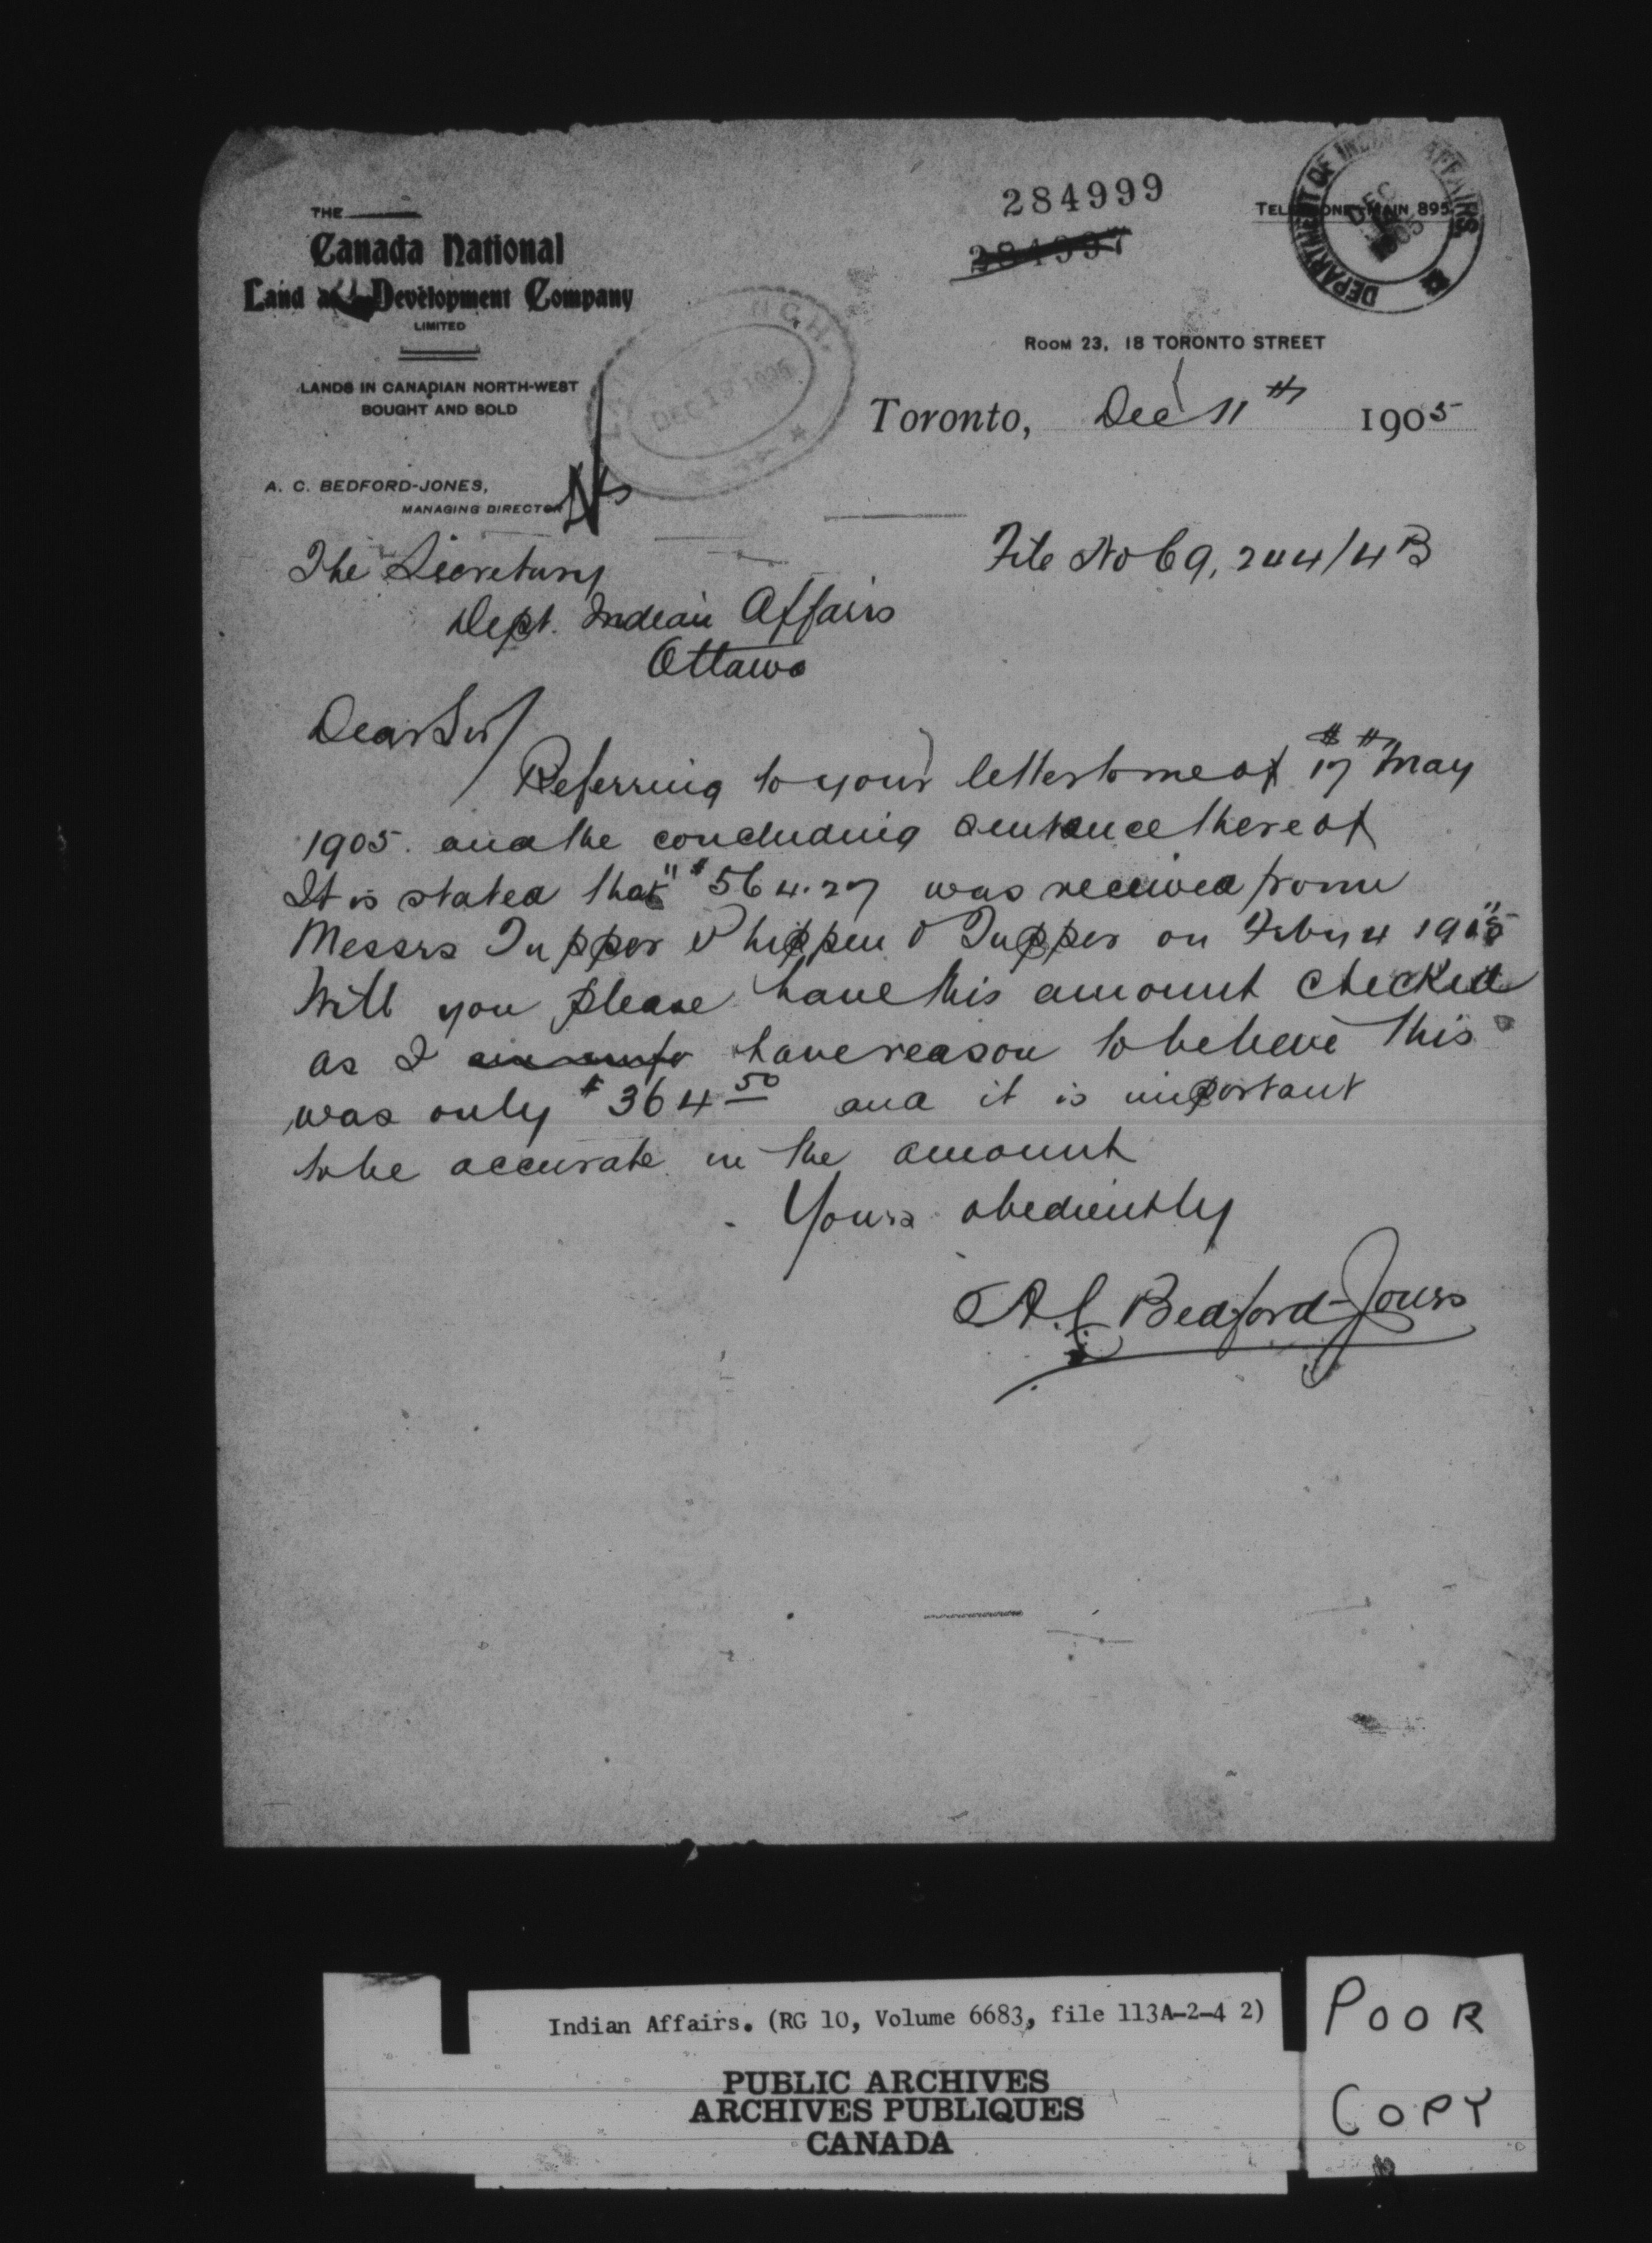 284999
284997
TELEPHONE MAIN 895
DEPARTMENT OF INDIAN AFFAIRS
DEC
1905
THE
Canada National
Land and Development Company
LIMITED
LANDS IN CANADIAN NORTH-WEST
BOUGHT AND SOLD
DEC 12 1905
ROOM 23, 18 TORONTO STREET
Toronto, Dec 11th 1905
A. C. BEDFORD-JONES,
MANAGING DIRECTOR
File No 69,244/4B
The Secretary
Dept. Indian Affairs
Ottawa
Dear Sir/
Referring to your letter to me of 17th May
1905. and the concluding sentance thereof
It is stated that "$564.27 was received from
Messrs Tupper Phippen & Tupper on Feby 4 1905"
Will you please have this amount checked
as I have reason to believe this
was only $364 50 and it is important
to be accurate in the amount
Yours obediently
A.C. Bedford-Jones
Indian Affairs. (RG 10, Volume 6683, file 113A-2-4 2)
PUBLIC ARCHIVES
ARCHIVES PUBLIQUES
CANADA
POOR
COPY